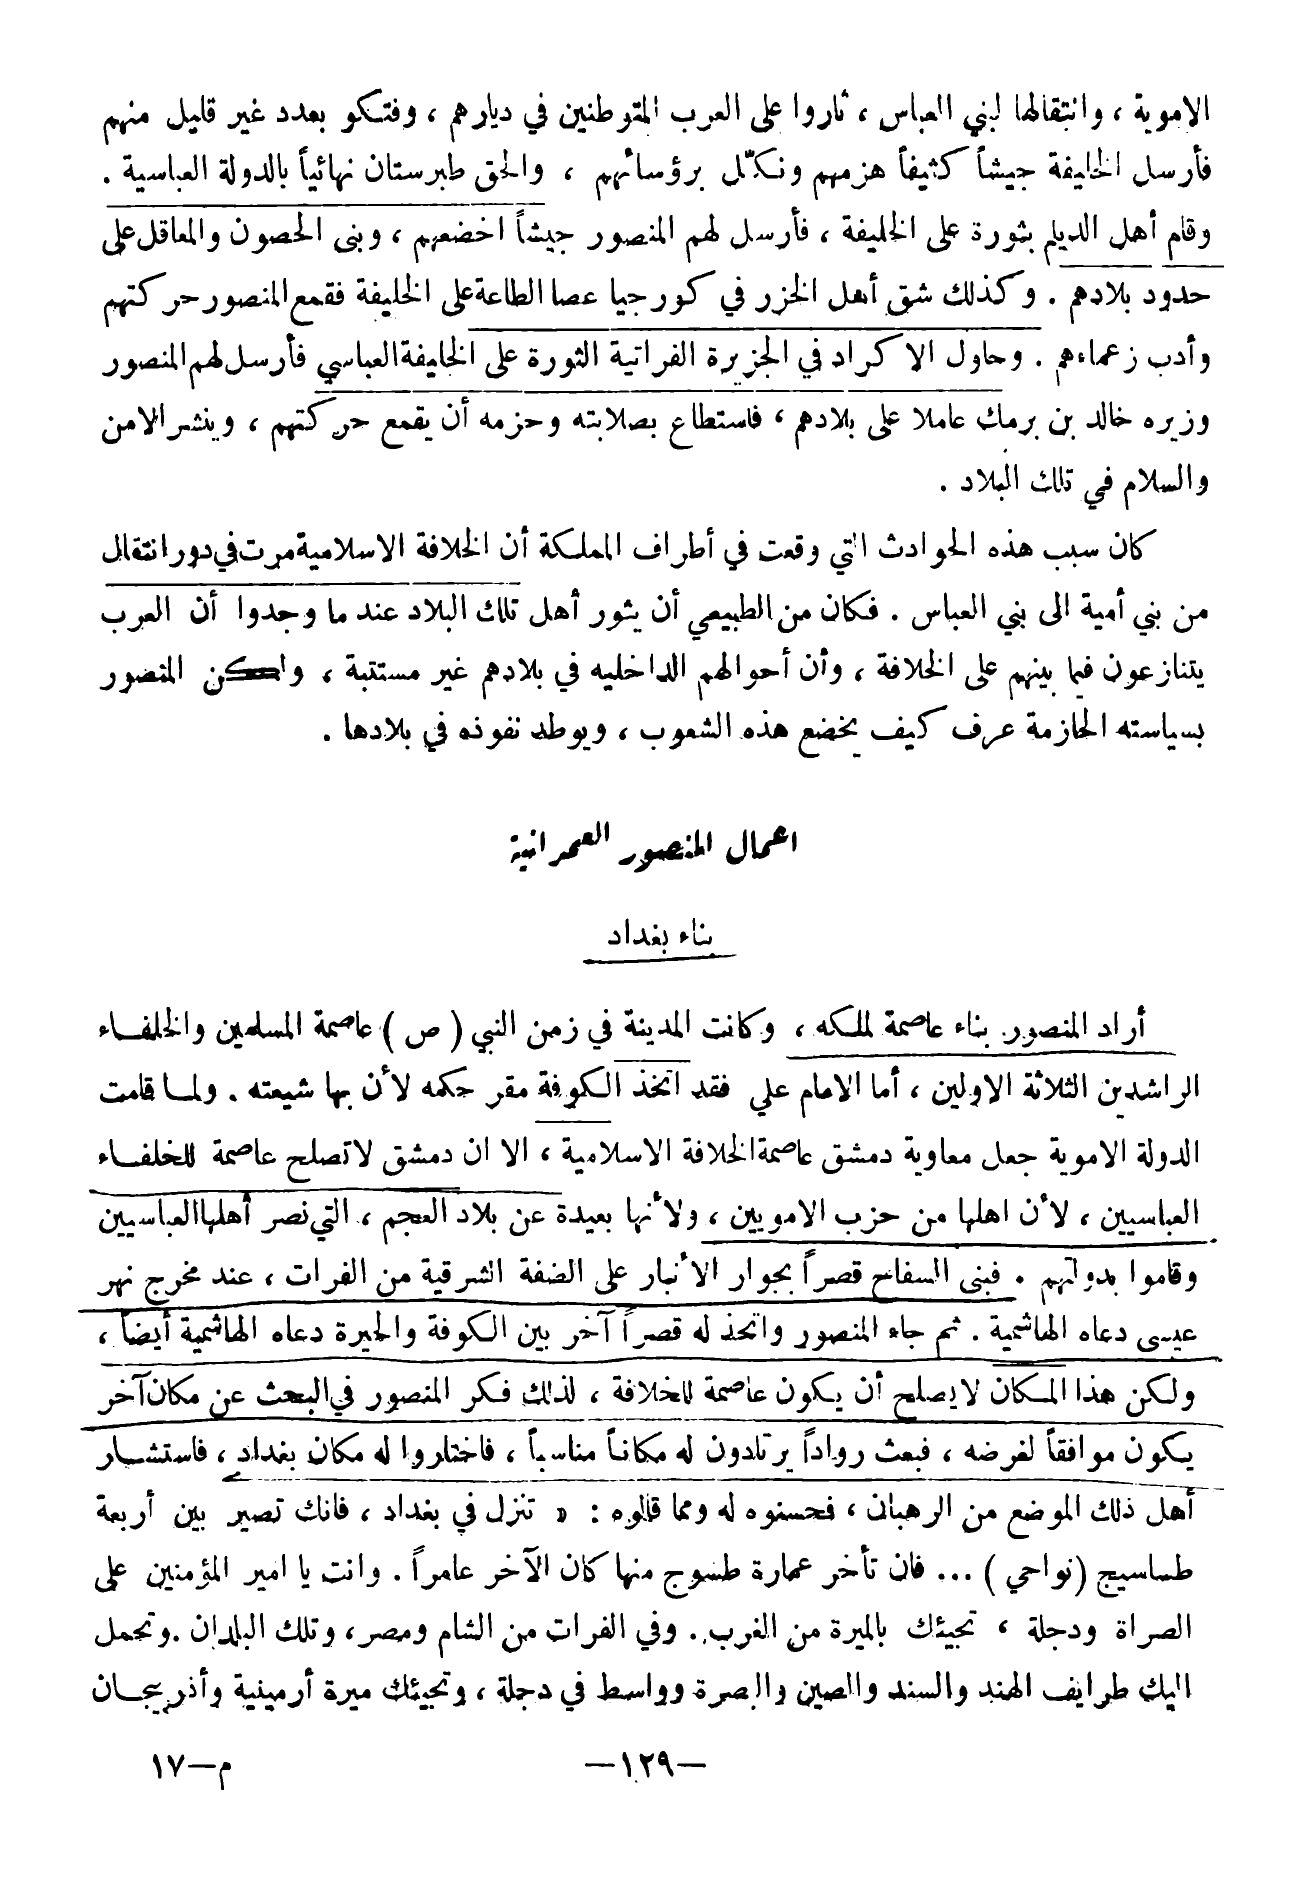 الاموية ، وانتقالها لبني العباس ، ثاروا على العرب المتوطنين في ديارهم ، وفتكو بعدد غير قليل منهم
فأرسل الخليفة جيشاً كثيفاً هزمهم ونكّل برؤسائهم ، والحق طبرستان نهائياً بالدولة العباسية .
وقام أهل الديلم بثورة على الخليفة ، فأرسل لهم المنصور جيشاً اخضعهم ، وبنى الحصون والمعاقل على
حدود بلادهم . وكذلك شق أهل الخزر في كورجيا عصا الطاعة على الخليفة فقمع المنصور حركتهم
وأدب زعماءهم . وحاول الاكراد في الجزيرة الفراتية الثورة على الخليفة العباسي فأرسل لهم المنصور
وزيره خالد بن برمك عاملا على بلادهم ، فاستطاع بصلابته وحزمه أن يقمع حركتهم ، وينشر الامن
والسلام في تلك البلاد .
كان سبب هذه الحوادث التي وقعت في أطراف المملكة أن الخلافة الاسلامية مرت في دور انتقال
من بني أمية الى بني العباس . فكان من الطبيعي أن يثور أهل تلك البلاد عند ما وجدوا أن العرب
يتنازعون فيما بينهم على الخلافة ، وأن أحوالهم الداخليه في بلادهم غير مستتبة ، ولكن المنصور
بسياسته الحازمة عرف كيف يخضع هذه الشعوب ، ويوطد نفوذه في بلادها .
اعمال المنصور العمرانية
بناء بغداد
أراد المنصور بناء عاصمة لملكه ، وكانت المدينة في زمن النبي ( ص ) عاصمة المسلمين والخلفاء
الراشدين الثلاثة الاولين ، أما الامام علي فقد اتخذ الكوفة مقر حكمه لأن بها شيعته . ولما قامت
الدولة الاموية جعل معاوية دمشق عاصمة الخلافة الاسلامية ، الا ان دمشق لا تصلح عاصمة للخلفاء
العباسيين ، لأن اهلها من حزب الامويين ، ولأنها بعيدة عن بلاد العجم ، التي نصر أهلها العباسيين
وقاموا بدولتهم . فبنى السفاح قصراً بجوار الأنبار على الضفة الشرقية من الفرات ، عند مخرج نهر
عيسى دعاه الهاشمية . ثم جاء المنصور واتخذ له قصراً آخر بين الكوفة والحيرة دعاه الهاشمية أيضاً ،
ولكن هذا المكان لا يصلح أن يكون عاصمة للخلافة ، لذلك فكر المنصور في البحث عن مكان آخر
يكون موافقاً لغرضه ، فبعث رواداً يرتادون له مكاناً مناسباً ، فاختاروا له مكان بغداد ، فاستشار
أهل ذلك الموضع من الرهبان ، فحسنوه له ومما قالوه : « تنزل في بغداد ، فانك تصير بين أربعة
طساسيج (نواحي) ... فان تأخر عمارة طسوج منها كان الآخر عامراً . وانت يا امير المؤمنين على
الصراة ودجلة ، تجيئك بالميرة من الغرب . وفي الفرات من الشام ومصر ، وتلك البلدان . وتحمل
اليك طرايف الهند والسند والصين والبصرة وواسط في دجلة ، وتجيئك ميرة أرمينية وأذربيجان
—١٢٩—
م—١٧